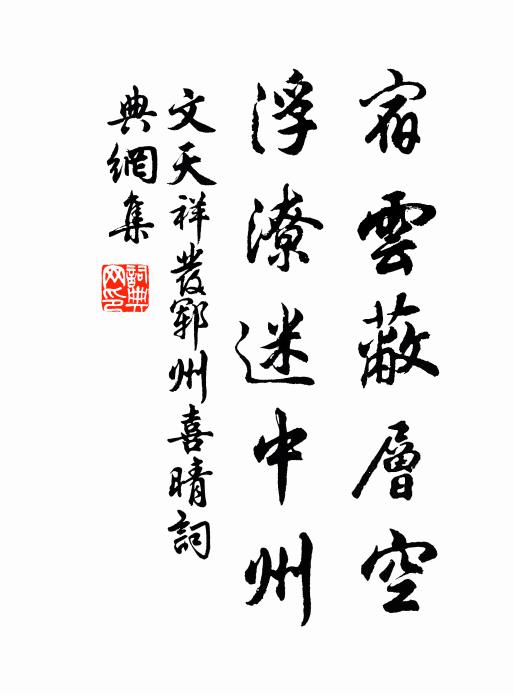 宿雲蔽層空
浮潦迷中州
文天祥發鄆州喜晴詞
典網集
詞典網印